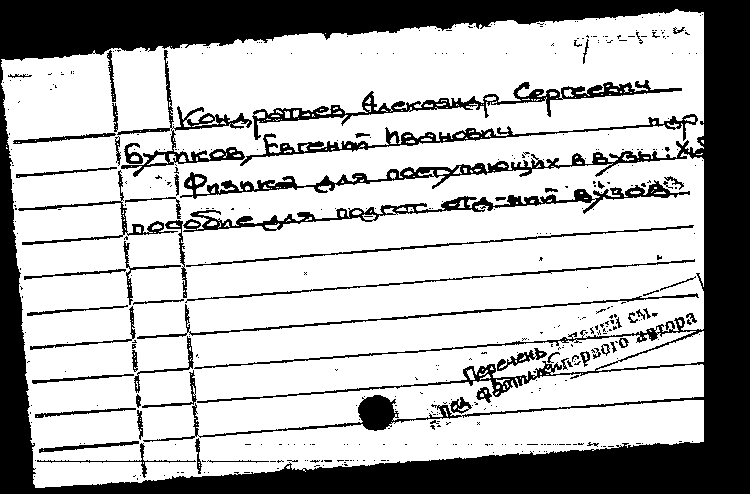 Кондратьев, Александр Сергеевич
Бутиков, Евгений Иванович и др.
Физика для поступающих в вузы: Учеб
пособие для подгот. отд-ний вузов.
Перечень изданий см.
под фамилией первого автора